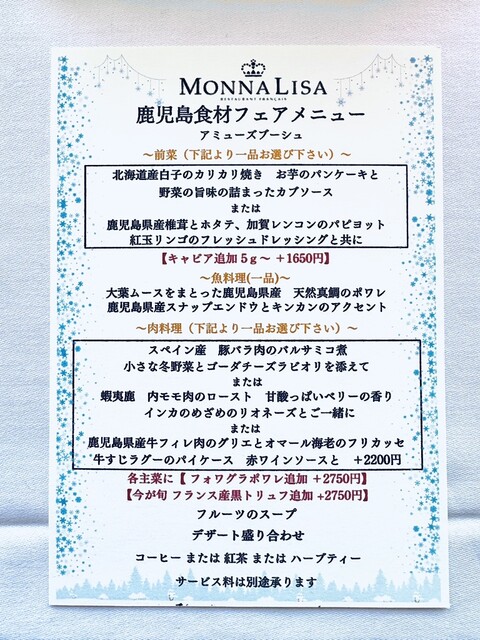 MONNA LISA
RESTAURANT FRANÇAIS
鹿児島食材フェアメニュー
アミューズブーシュ
～前菜（下記より一品お選び下さい）～
北海道産白子のカリカリ焼き　お芋のパンケーキと
野菜の旨味の詰まったカブソース
または
鹿児島県産椎茸とホタテ、加賀レンコンのパピヨット
紅玉リンゴのフレッシュドレッシングと共に
【キャビア追加 5ｇ～ ＋1650円】
～魚料理(一品)～
大葉ムースをまとった鹿児島県産　天然真鯛のポワレ
鹿児島県産スナップエンドウとキンカンのアクセント
～肉料理（下記より一品お選び下さい）～
スペイン産　豚バラ肉のバルサミコ煮
小さな冬野菜とゴーダチーズラビオリを添えて
または
蝦夷鹿　内モモ肉のロースト　甘酸っぱいベリーの香り
インカのめざめのリオネーズとご一緒に
または
鹿児島県産牛フィレ肉のグリエとオマール海老のフリカッセ
牛すじラグーのパイケース　赤ワインソースと　＋2200円
各主菜に【 フォワグラポワレ追加 ＋2750円】
【今が旬 フランス産黒トリュフ追加 +2750円】
フルーツのスープ
デザート盛り合わせ
コーヒー または 紅茶 または ハーブティー
サービス料は別途承ります